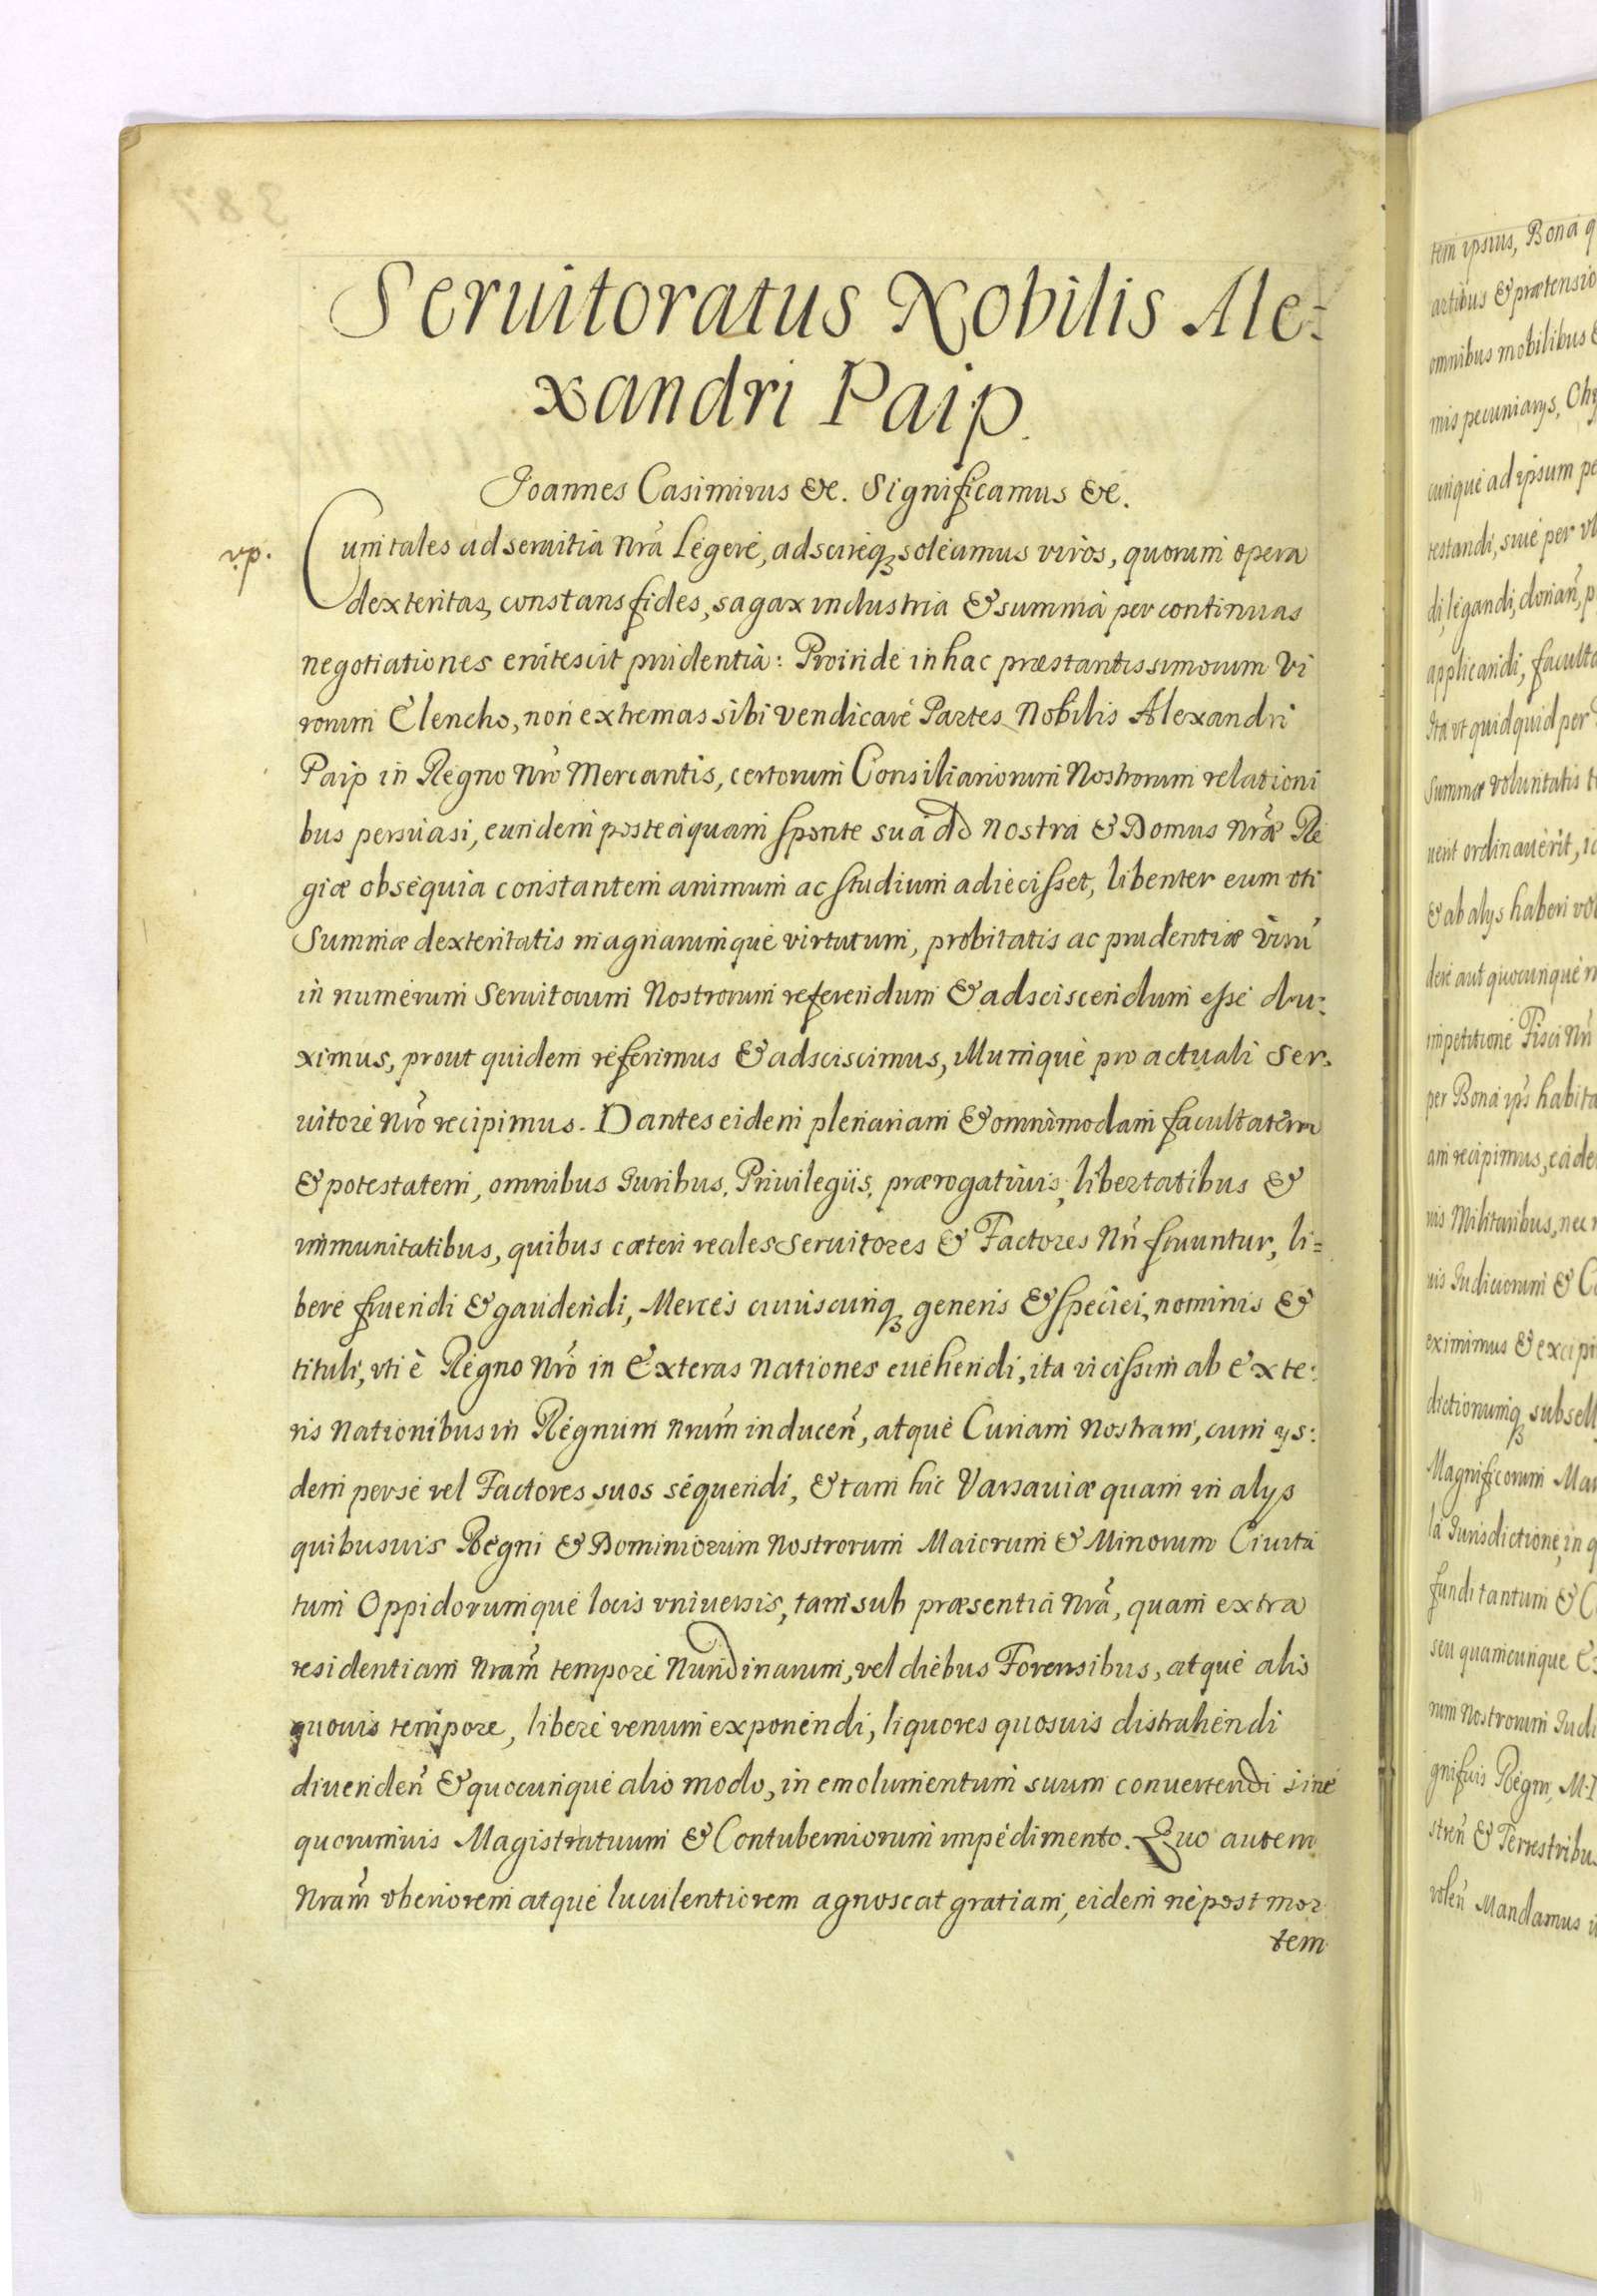 Seruitoratus Nobilis Ale:
xandri Paip.
Joannes Casimirus &c. Significamus &c.
vp.
Cum tales ad seruitia nrã Legere, adscireqꝫ soleamus viros, quorum opera
dexteritas, constans fides, sagax industria & summa per continuas
negotiationes enitescit prudentia: Proinde in hac præstantissimorum Vi
rorum Elencho, non extremas sibi vendicare Partes Nobilis Alexandri
Paip in Regno Nrõ Mercantis, certorum Consiliariorum Nostrorum relationi
bus persuasi, eundem posteaquam sponte sua ad nostra & Domus Nrǽ Re
giæ obsequia constantem animum ac studium adiecisset, libenter eum vti
Summæ dexteritatis magnarumque virtutum, probitatis ac prudentiæ Virũ
in numerum Seruitorum Nostrorum referendum & adsciscendum esse du:
ximus, prout quidem referimus & adsciscimus, Illumque pro actuali Ser:
uitore Nrõ recipimus. Dantes eidem plenariam & omnimodam facultatem
& potestatem, omnibus Juribus, Priuilegiis, prærogatiuis, libertatibus &
immunitatibus, quibus cæteri reales Seruitores & Factores Nrĩ fruuntur, li=
bere fruendi & gaudendi, Merces cuiuscunqꝫ generis & speciei, nominis &
tituli, vti è Regno Nrõ in Exteras Nationes euehendi, ita vicissim ab Exte:
ris Nationibus in Regnum Nrum̃ inducen̄, atque Curiam Nostram, cum ijs:
dem per se vel Factores suos sequendi, & tam hic Varsauiæ quam in alijs
quibusuis Regni & Dominiorum Nostrorum Maiorum & Minorum Ciuita
tum Oppidorumque locis vniuersis, tam sub præsentia Nrã, quam extra
residentiam Nram̃ tempore Nundinarum, vel diebus Forensibus, atque alio
quouis tempore, libere venum exponendi, liquores quosuis distrahendi
diuenden̄ & quocunque alio modo, in emolumentum suum conuertendi sine
quorumuis Magistratuum & Contuberniorum impedimento. Quo autem
Nram̃ vberiorem atque luculentiorem agnoscat gratiam, eidem ne post mor
tem
tem ipsius, Bona q
artibus & prætensio
omnibus mobilibus &
mis pecuniarijs,
cunque ad ipsum pe
testandi, siue per
di, legandi, donan̄, p
applicandi, faculta
Ita vt quidquid per
Summæ voluntatis t
uerit ordinauerit,
& ab alijs haberi vol
dere aut quocunque
impetitione Fisci Nrĩ
per Bona habita
am recipimus,
uis Militaribus, nec
uis Judiciorum & C
eximimus & excipi
dictionumqꝫ subsell
Magnificorum Mar
la Jurisdictione, in q
fundi tantum & C
seu quamcunque
rum Nostrorum Judi
gnifuis Regni, M.
& Terrestribus
volen̄ Mandamus